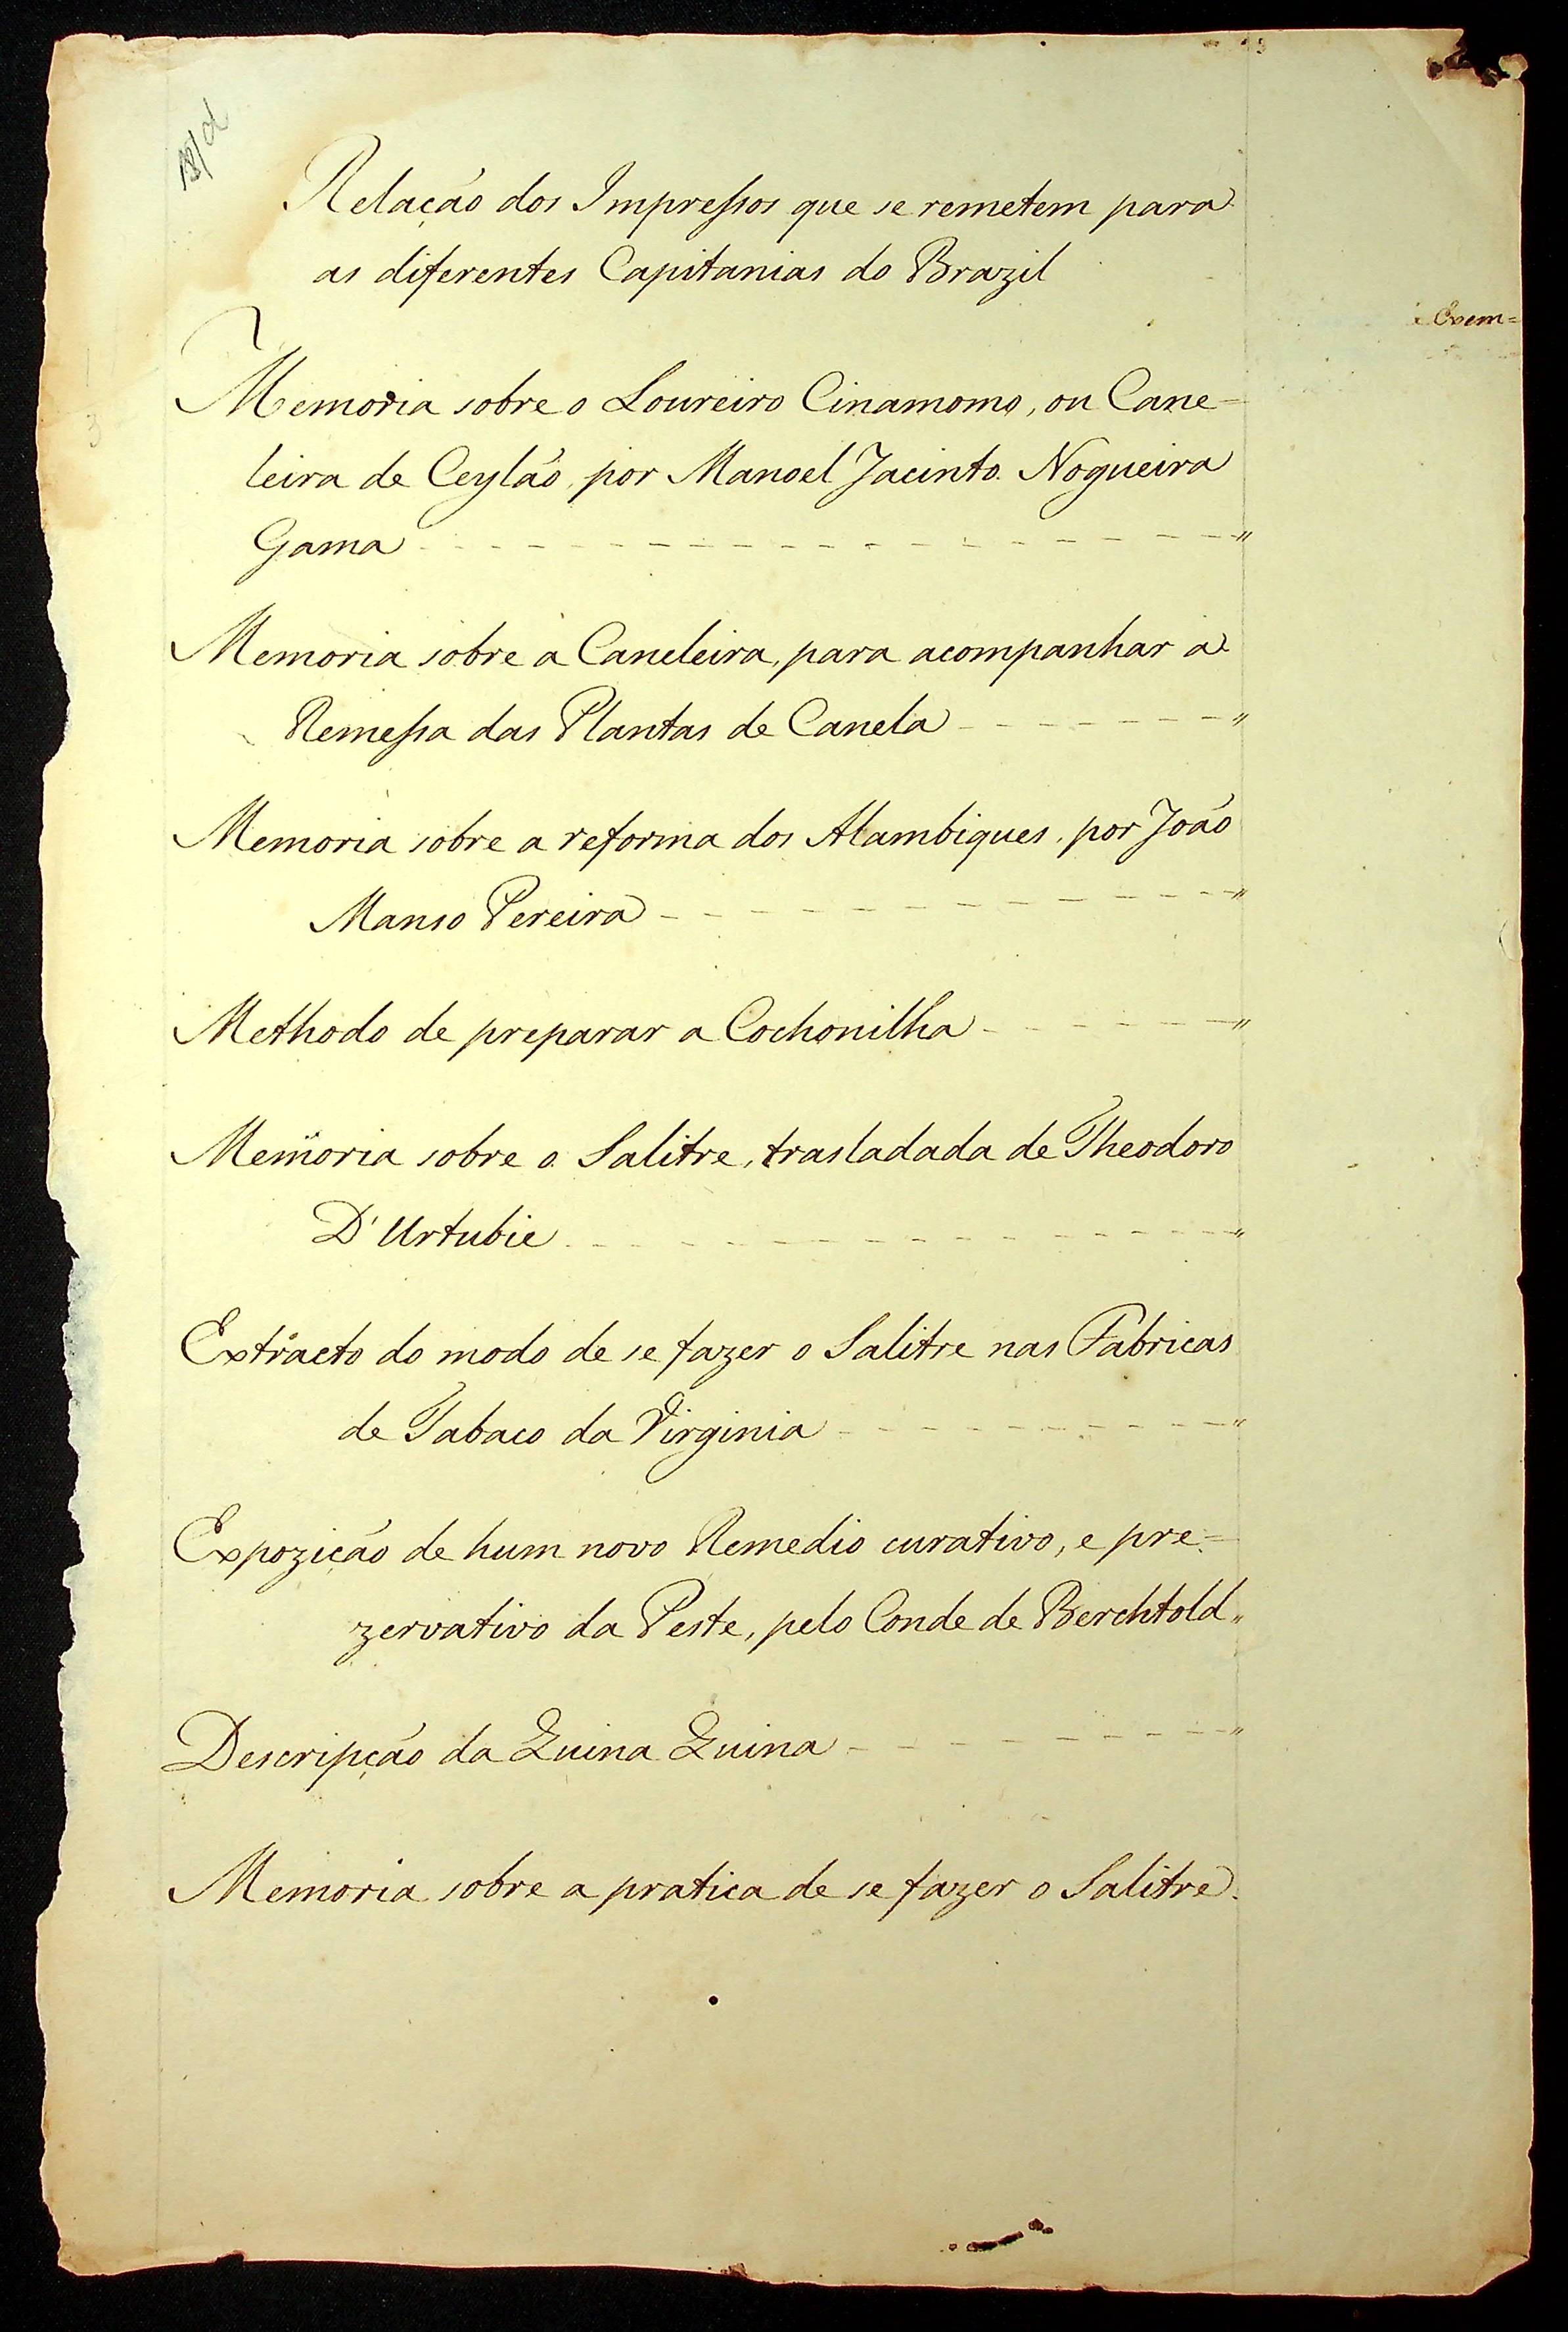 Relação dos Impressos que se remetem para
as diferentes Capitanias do Brazil
Exem=
Memoria sobre o Loureiro Cinamomo, ou Cane=
leira de Ceylão, por Manoel Jacinto Nogueira
Gama - - - - - - - - - - - - - - - "
Memoria sobre a Caneleira, para acompanhar a
Remessa das Plantas de Canela - - - - - - - "
Memoria sobre a reforma dos Alambiques, por João
Manso Pereira - - - - - - - - - - - "
Methodo de preparar a Cochonilha - - - - - - "
Memoria sobre o Salitre, trasladada de Theodoro
D'Urtubie - - - - - - - - - - - - - "
Extracto do modo de se fazer o Salitre nas Fabricas
de Tabaco da Virginia - - - - - - - - - "
Expozição de hum novo Remedio curativo, e pre=
zervativo da Peste, pelo Conde de Berchtold "
Descripção da Quina Quina - - - - - - - - "
Memoria sobre a pratica de se fazer o Salitre.